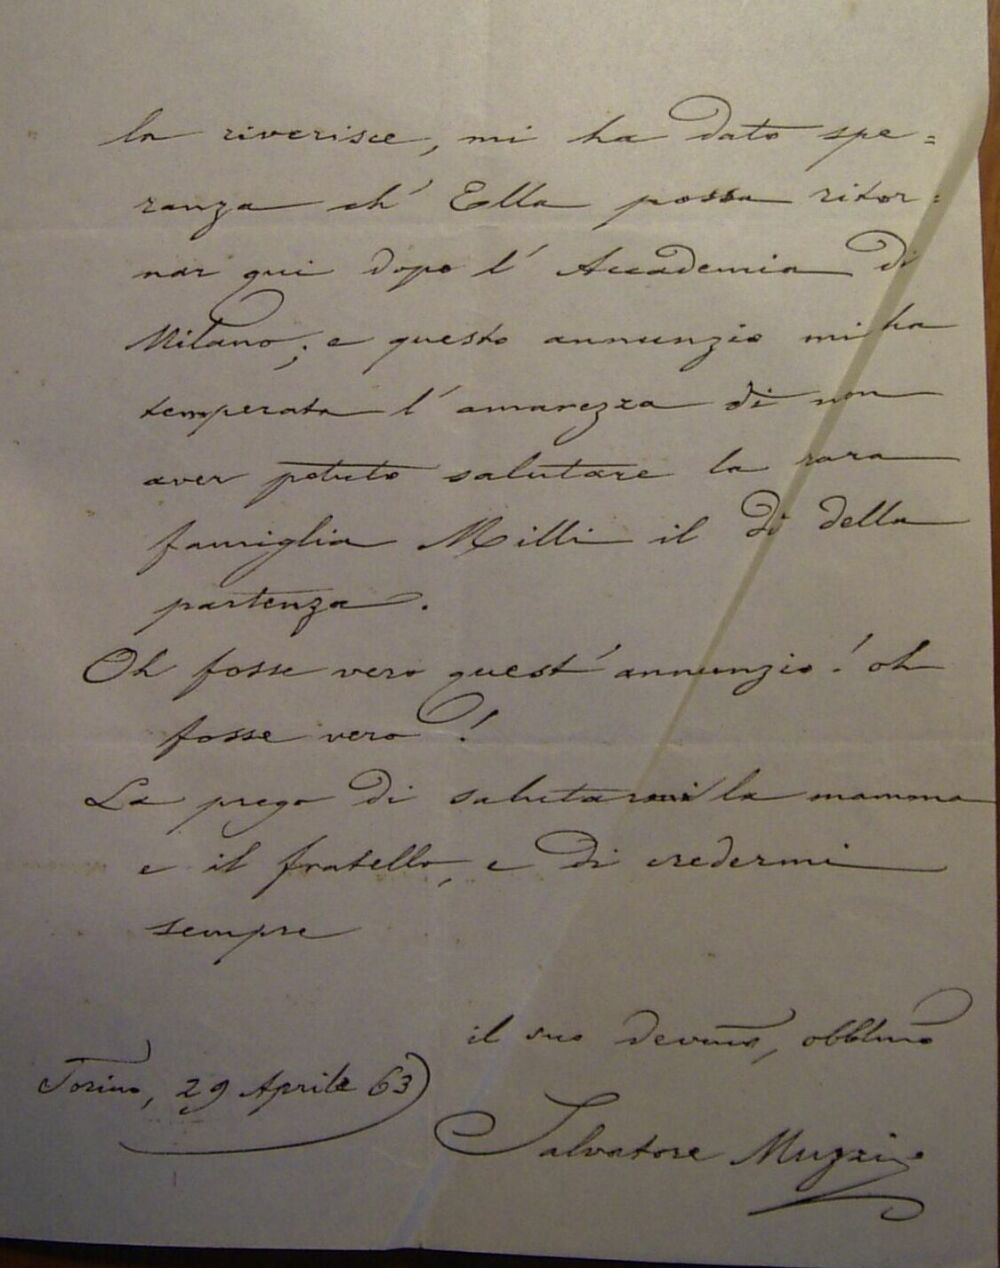 la riverisce, mi ha dato spe=
ranza ch' Ella possa ritor=
nar qui dopo l' Accademia di
Milano; e questo annunzio mi ha
temperata l' amarezza di non
aver potuto salutare la rara
famiglia Milli il dì della
partenza.
Oh fosse vero quest' annunzio! oh
fosse vero!
La prego di salutarmi la mamma
e il fratello, e di credermi
sempre
il suo devmo, obblmo
Torino, 29 Aprile 63
Salvatore Muzzi